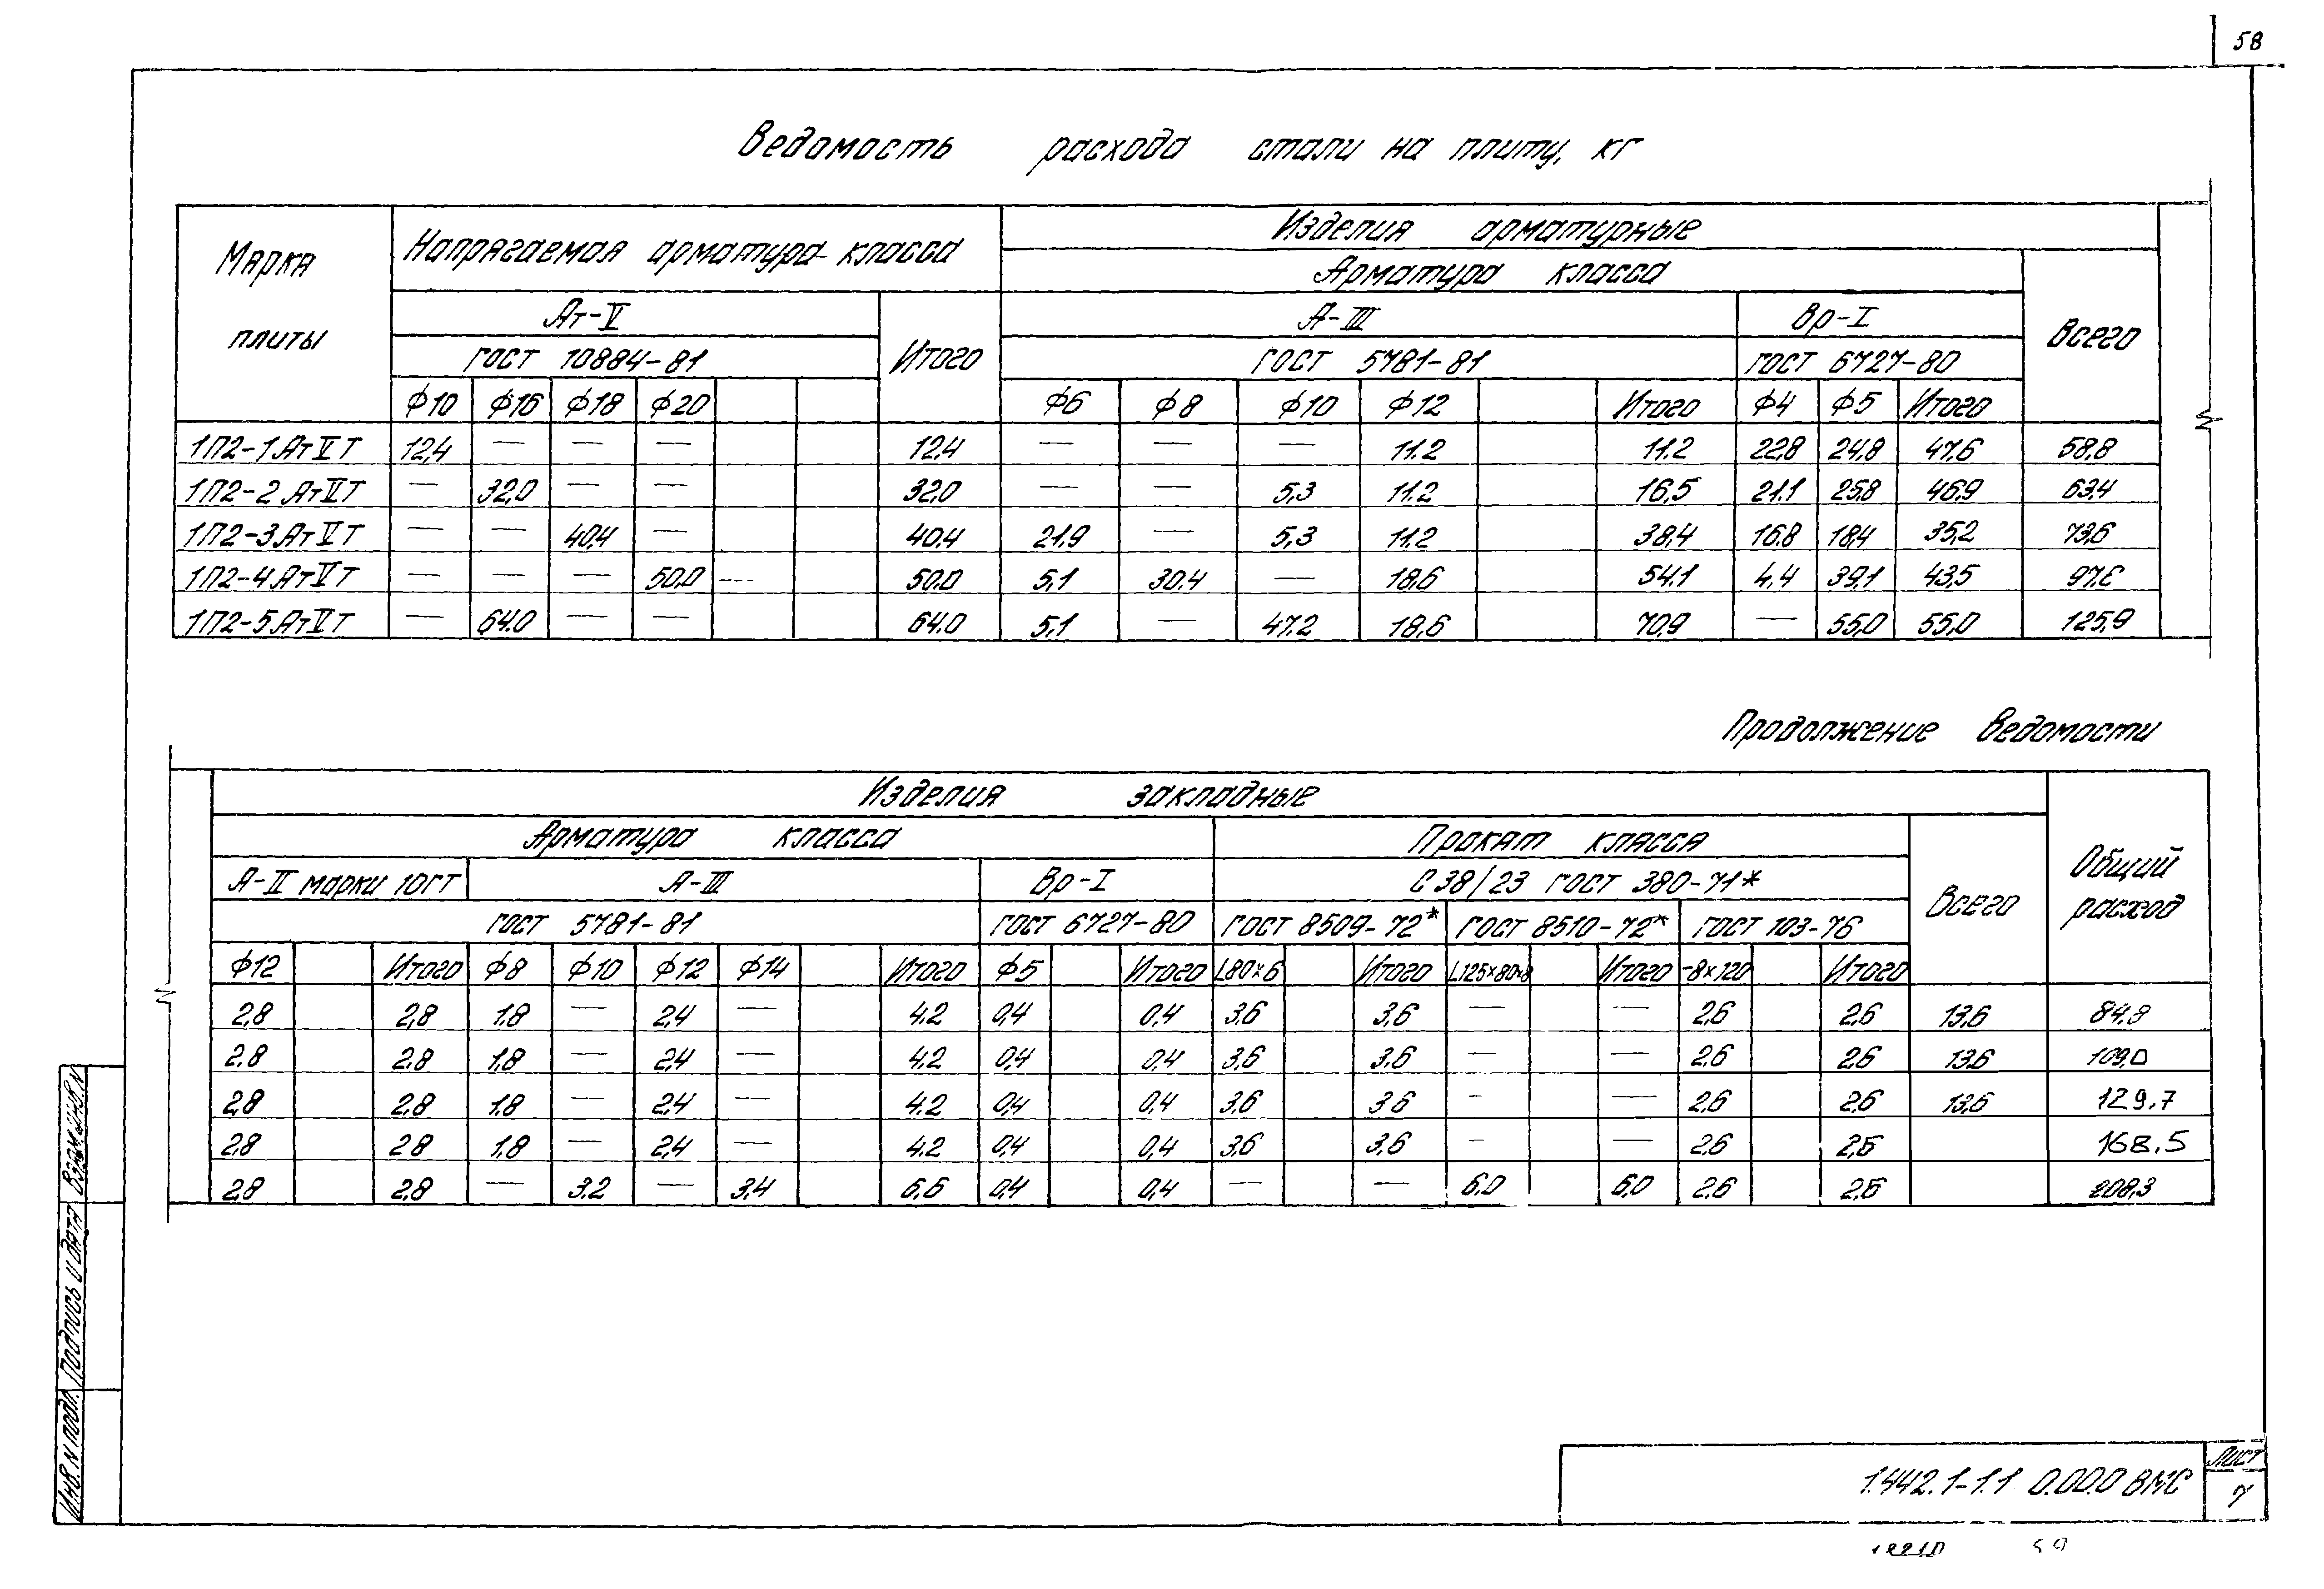 58
Ведомость расхода стали на плиту, кг
Марка плиты
Напрягаемая арматура класса
Изделия арматурные
Арматура класса
Ат-V
Итого
А-III
Вр-I
Всего
ГОСТ 10884-81
ГОСТ 5781-81
ГОСТ 6727-80
Ф10 Ф16 Ф18 Ф20 Ф6 Ф8 Ф10 Ф12 Итого Ф4 Ф5 Итого
1П2-1АтVТ 12,4 — — — 12,4 — — — 11.2 11.2 22,8 24,8 47,6 58,8
1П2-2АтVТ — 32,0 — — 32,0 — — 5,3 11.2 16,5 21.1 25,8 46,9 63,4
1П2-3АтVТ — — 40,4 — 40,4 21.9 — 5,3 11.2 38,4 16.8 18,4 35,2 73,6
1П2-4АтVТ — — — 50,0 — 50,0 5,1 30,4 — 18,6 54.1 4,4 39,1 43,5
1П2-5АтVТ — 64.0 — — 64.0 5,1 — 47.2 18,6 70,9 — 55,0 55,0 125,9
Продолжение ведомости
Изделия закладные
Арматура класса
Прокат класса
Всего
Общий расход
А-II марки 10ГТ
А-III
Вр-I
С38/23 ГОСТ 380-71*
ГОСТ 5781-81
ГОСТ 6727-80
ГОСТ 8509-72*
ГОСТ 8510-72*
ГОСТ 103-76
Ф12 Итого Ф8 Ф10 Ф12 Ф14 Итого Ф5 Итого L80×6 Итого L125×80×8 Итого -8×120 Итого
2,8 2,8 1.8 — 2,4 — 4.2 0,4 0,4 3,6 3,6 — — 2,6 2,6 13,6 84,8
2,8 2,8 1,8 — 2,4 — 4.2 0,4 0,4 3,6 3.6 — — 2.6 2,6 13,6 109,0
2,8 2,8 1,8 — 2,4 — 4.2 0,4 0,4 3,6 3,6 - — 2,6 2,6 13,6 129,7
2,8 2,8 1,8 — 2,4 — 4.2 0,4 0,4 3,6 3,6 - — 2,6 2,6 168.5
2,8 2,8 — 3.2 — 3,4 6,6 0,4 0,4 — — 6,0 6,0 2,6 2,6 208,3
Инв. N подл. Подпись и дата Взам. инв. N
1.442.1-1.1 0.00.0 ВМС
Лист
7